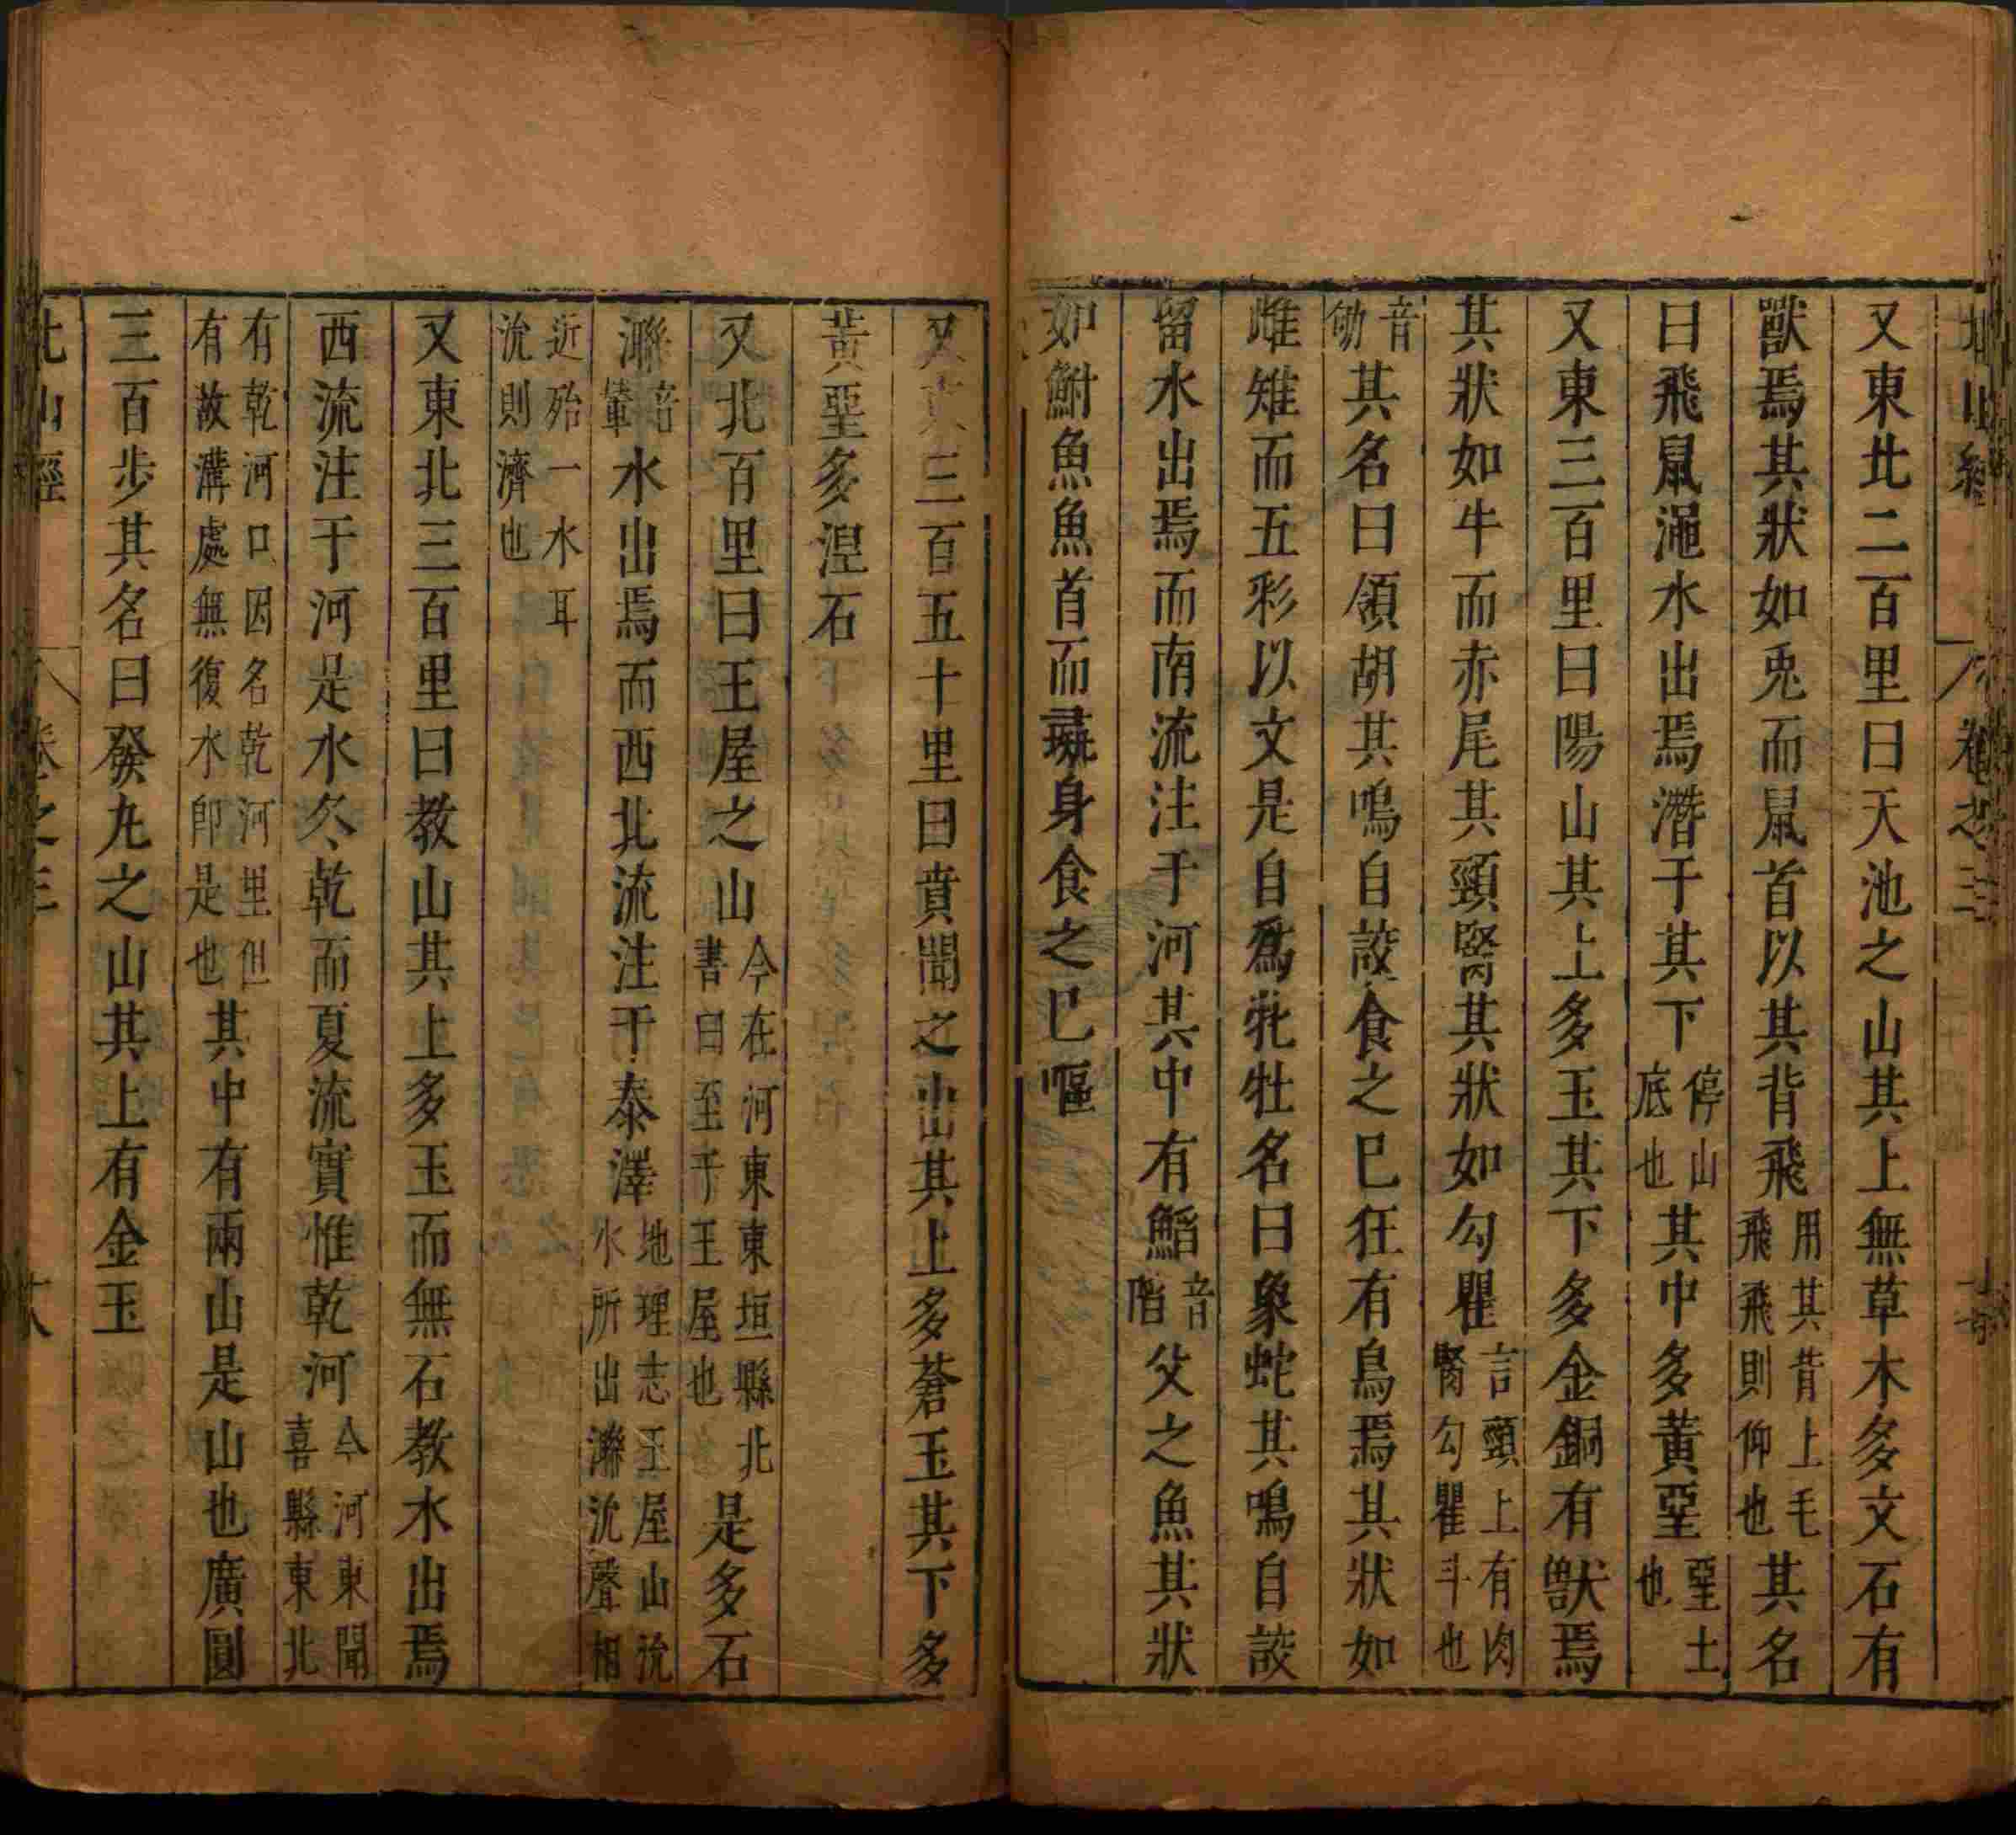 北山經 卷之三
又東北二百里曰天池之山其上無草木多文石有
獸焉其狀如兎而鼠首以其背飛用其背上毛飛飛則仰也其名
曰飛鼠澠水出焉潛于其下停山底也其中多黃堊堊土也
又東三百里曰陽山其上多玉其下多金銅有獸焉
其狀如牛而赤尾其頸䏿其狀如勾瞿言頸上有肉䏿勾瞿斗也
音劬其名曰領胡其鳴自詨食之巳狂有鳥焉其狀如
雌雉而五彩以文是自爲牝牡名曰象蛇其鳴自詨
留水出焉而南流注于河其中有䱤音陷父之魚其狀
如鮒魚魚首而彘身食之巳嘔
又東三百五十里曰賁聞之山其上多蒼玉其下多
黃堊多涅石
又北百里曰王屋之山今在河東東垣縣北書曰至于王屋也是多石
㶌音輦水出焉而西北流注于泰澤地理志王屋山沇水所出㶌沇聲相
近殆一水耳沇則濟也
又東北三百里曰教山其上多玉而無石教水出焉
西流注于河是水冬乾而夏流實惟乾河今河東聞喜縣東北
有乾河口因名乾河里但有故溝處無復水卽是也其中有兩山是山也廣圓
三百步其名曰發丸之山其上有金玉
北山經 卷之三